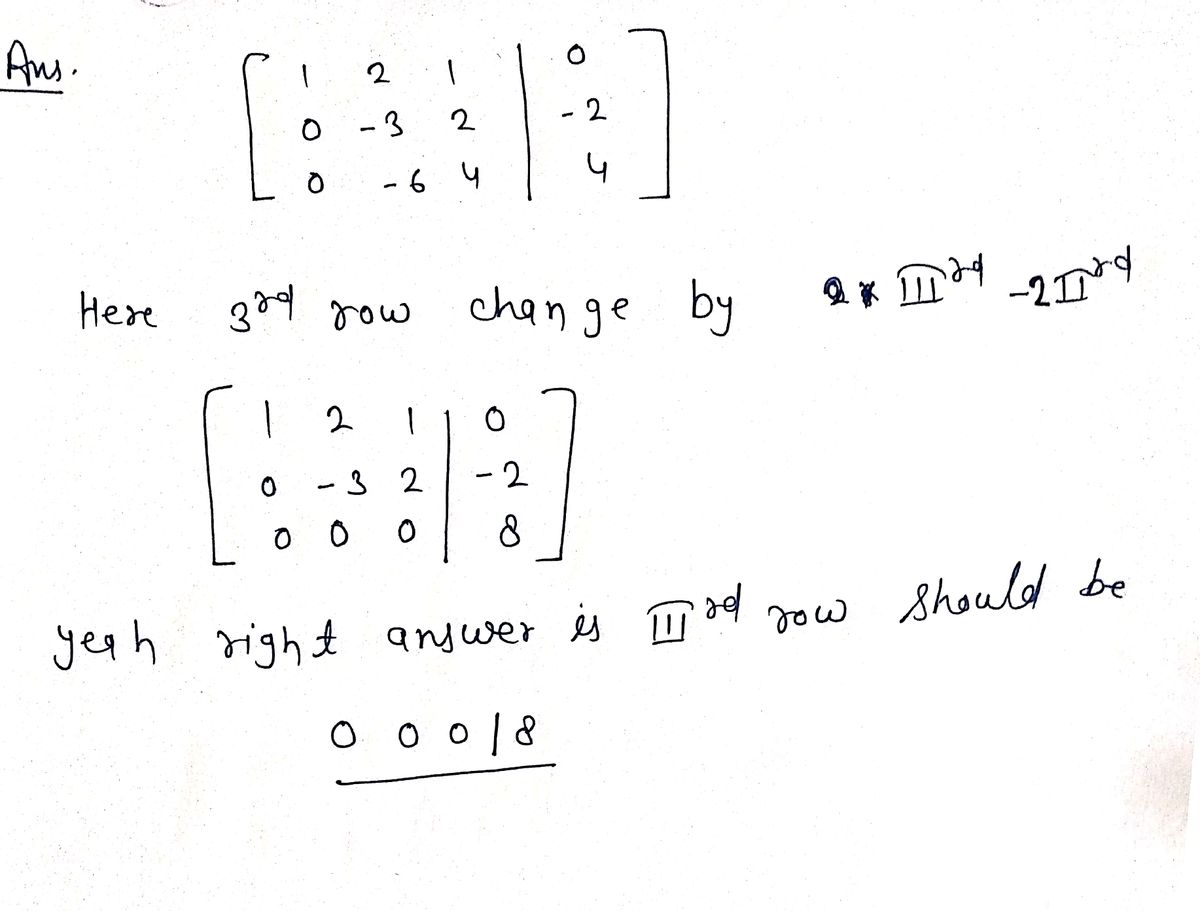 Ans.
1 2 1 | 0
0 -3 2 | -2
0 -6 4 | 4
Here 3rd row change by III rd -2II rd
1 2 1 | 0
0 -3 2 | -2
0 0 0 | 8
yeah right answer is III rd row should be
0 0 0 | 8